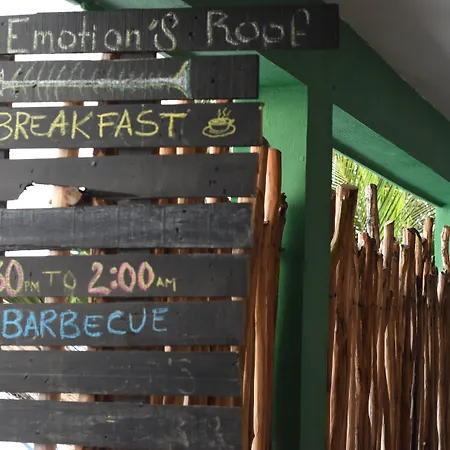 Emotion's Roof
BREAKFAST
50 PM TO 2:00 AM
BARBECUE